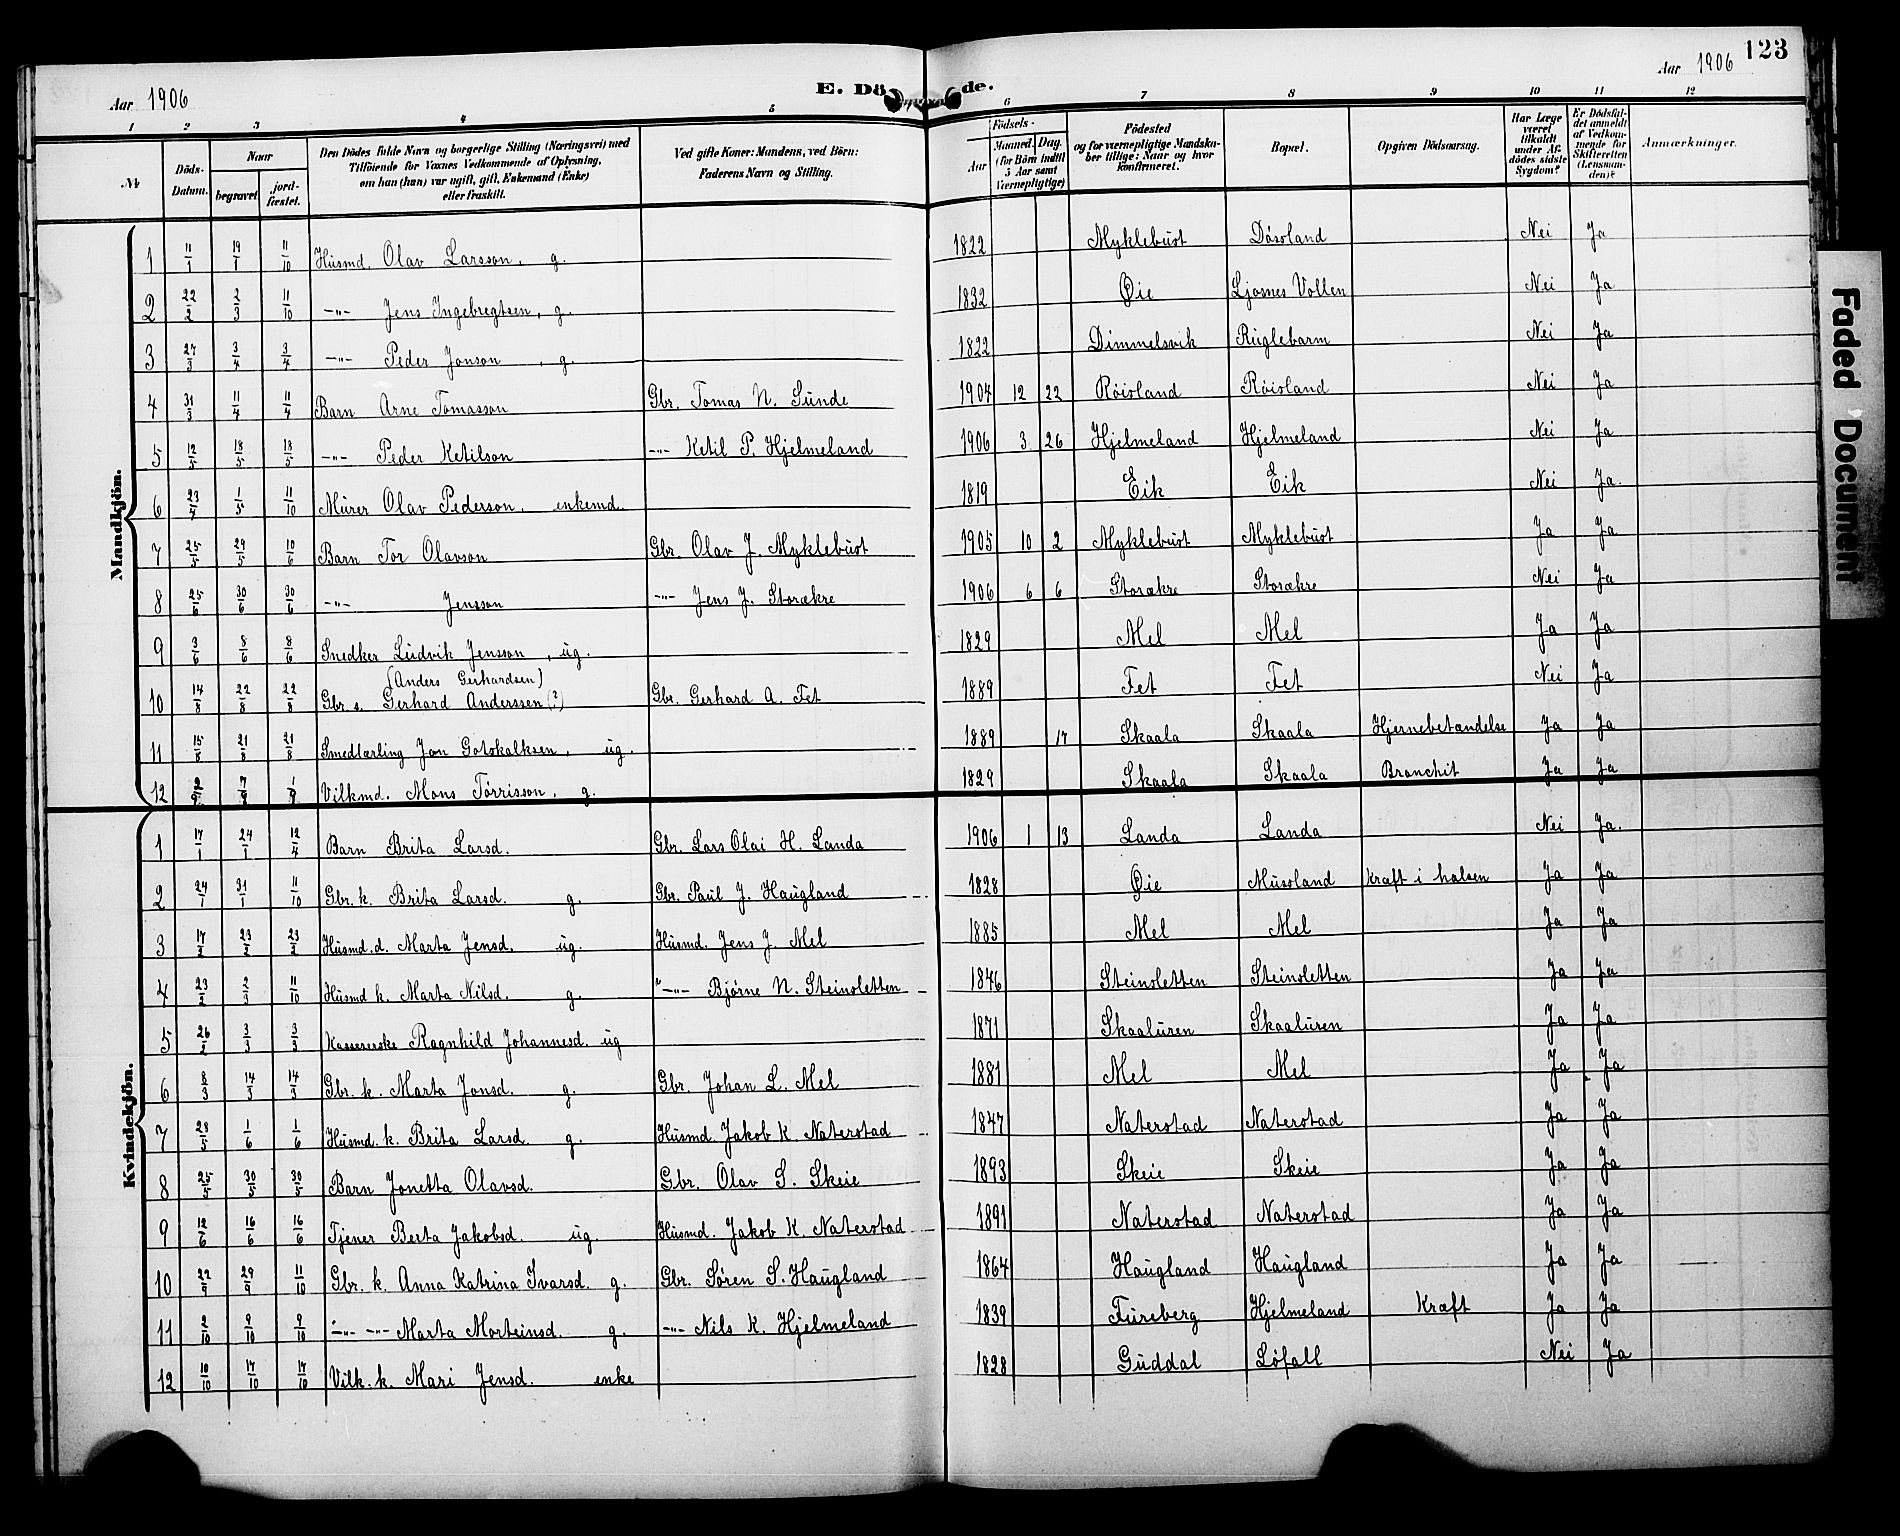 Aar 1906
E. Dö de.
Aar 1906 123
1 2 3 4 5 6 7 8 9 10 11 12
№ Döds-Datum. Naar begravet jordfæstet. Den Dödes fulde Navn og borgerlige Stilling (Næringsvei) med Tilföiende for Voxnes Vedkommende af Oplysning, om han (hun) var ugift, gift, Enkemand (Enke) eller fraskilt. Ved gifte Koner: Mandens, ved Börn: Faderens Navn og Stilling. Födsels- Aar Maaned. Dag. (for Börn indtil 5 Aar samt Værnepligtige) Födested og for værnepligtige Mandskaber tillige: Naar og hvor konfirmeret. Bopæl. Opgiven Dödsaarsag. Har Læge været tilkaldt under Afdödes sidste Sygdom? Er Dödsfaldet anmeldt af Vedkommende for Skifteretten (Lensmanden)? Anmærkninger.
Mandkjön.
1 11/1 19/1 11/10 Husmd. Olav Larsson, g. 1822 Myklebust Dösland Nei Ja
2 22/2 2/3 11/10 -"- Jens Ingebregtsen, g. 1832 Øie Ljosnes Vollen Nei Ja
3 27/3 3/4 3/4 -"- Peder Jonson, g. 1822 Dimmelsvik Ruglebarm Nei Ja
4 31/3 11/4 11/4 Barn Arne Tomasson Gbr. Tomas N. Sunde 1904 12 22 Røisland Røisland Nei Ja
5 12/5 18/5 18/5 -"- Peder Ketilson -"- Ketil P. Hjelmeland 1906 3 26 Hjelmeland Hjelmeland Nei Ja
6 23/4 1/5 11/10 Murer Olav Pederson, enkemd. 1819 Eik Eik Nei Ja.
7 25/5 29/5 10/6 Barn Tor Olavson Gbr. Olav J. Myklebust 1905 10 2 Myklebust Myklebust Ja Ja
8 25/6 30/6 30/6 -"- Jensson -"- Jens J. Storækre 1906 6 6 Storækre Storækre Nei Ja
9 3/6 8/6 8/6 Snedker Ludvik Jensson, ug. 1829 Mel Mel Ja Ja
(Anders Gerhardsen)
10 14/8 22/8 22/8 Gbr. s. Gerhard Anderssen (?) Gbr. Gerhard A. Fet 1889 Fet Fet Nei Ja
11 15/8 21/8 21/8 Smedlærling Jon Gotskalksen, ug. 1889 17 Skaala Skaala Hjernebetændelse Ja Ja
12 7/9 Vilkmd. Mons Tørrisson, g. 1829 Skaala Skaala Bronchit Ja Ja
Kvindekjön.
1 17/1 24/1 12/4 Barn Brita Larsd. Gbr. Lars Olai H. Landa 1906 1 13 Landa Landa Nei Ja.
2 24/1 31/1 11/10 Gbr. k. Brita Larsd. g. Gbr. Paul J. Haugland 1828 Øie Musland Kræft i halsen Ja Ja
3 17/2 23/2 23/2 Husmd. d. Marta Jensd. ug. Husmd. Jens J. Mel 1885 Mel Mel Ja Ja
4 23/2 2/3 11/10 Husmd k. Marta Nilsd. g. " -"- Bjørne N. Steinsletten 1846 Steinsletten Steinsletten Ja Ja
5 26/2 3/3 3/3 Kassererske Ragnhild Johannesd. ug 1871 Skaaluren Skaaluren Ja Ja
6 8/3 14/3 14/3 Gbr. k. Marta Jonsd. g. Gbr. Johan L. Mel 1881 Mel Mel Ja Ja
7 28/5 1/6 1/6 Husmd. k. Brita Larsd. g. Husmd. Jakob K. Naterstad 1847 Naterstad Naterstad Ja Ja
8 25/5 30/5 30/5 Barn Jonetta Olavsd. Gbr. Olav S. Skeie 1893 Skeie Skeie Ja Ja
9 12/6 16/6 16/6 Tjener Berta Jakobsd. ug. Husmd. Jakob K. Naterstad 1891 Naterstad Naterstad Ja Ja
10 22/9 29/9 11/10 Gbr. k. Anna Katrina Ivarsd. g. Gbr. Søren S. Haugland 1864 Haugland Haugland Ja Ja
11 2/10 9/10 9/10 -"- -"- Marta Morteinsd. g. -"- Nils K. Hjelmeland 1839 Fureberg Hjelmeland Kræft Ja Ja
12 10/10 17/10 17/10 Vilk. k. Mari Jensd. enke 1828 Guddal Løfall Nei Ja
Faded Document